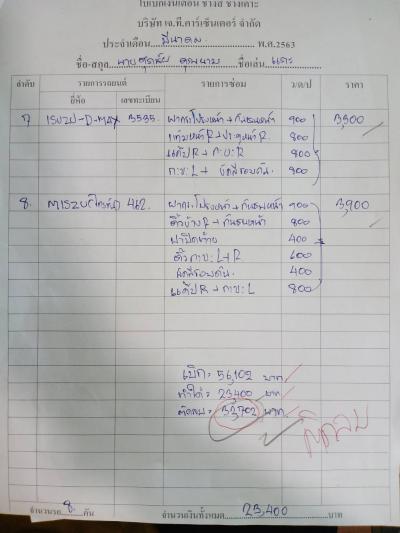 ใบเบิกเงินเดือน ช่างสี ช่างเคาะ
บริษัท เจ.ที.คาร์เซ็นเตอร์ จำกัด
ประจำเดือน มีนาคม พ.ศ.2563
ชื่อ-สกุล นาย ชื่อเล่น
ลำดับ รายการรถยนต์ รายการซ่อม ว/ด/ป ราคา
ยี่ห้อ เลขทะเบียน
7. ISUZU-D-MAX 3535 ฝากระโปรงหน้า + กันชนหน้า 900 3,300
แก้มหน้า R + ประตูหน้า R. 800
แค๊ป R + กะบะ R 800
กะบะ L + 800
8. 462 ฝากระโปรงหน้า + กันชนหน้า 900 3,900
R + กันชนหน้า 800
ฝาปิดท้าย 400
คิ้วกาบะ L + R 600
400
แค๊ป R + กาบะ L 800
เบิก = 56,102 บาท
ทำได้ = 23,400 บาท
ติดลบ = 32,702 บาท
ติดลบ
จำนวนรถ 8. คัน จำนวนเงินทั้งหมด 23,400 บาท